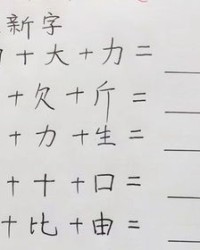 新字
＋大＋力＝
＋欠＋斤＝
＋力＋生＝
＋十＋口＝
＋比＋由＝